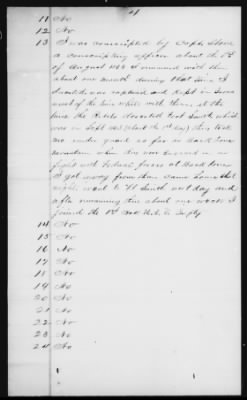 11 No
12 No
13 I was conscripted by Capt. Stone
a conscripting officer about the 1st
of August 1863 & remained with them
about one month during that time I
was kept in
most of the time while with them, at the
time the Rebels deserted Fort Smith which
was in Sept 1863 (about the 1st day) they took
me under guard as far as Back Bone
Mountain when they were dispersed in a
fight with Federal forces at Back Bone
I got away from them came home that
night, went to Ft Smith next day and
after remaining there about one week I
joined the 1st
14 No
15 No
16 No
17 No
18 No
19 No
20 No
21 No
22 No
23 No
24 No